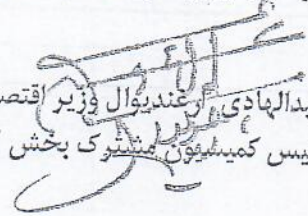 عبدالهادی ارغندیوال وزیر اقتصا
یس کمیسیون مشترک بخش